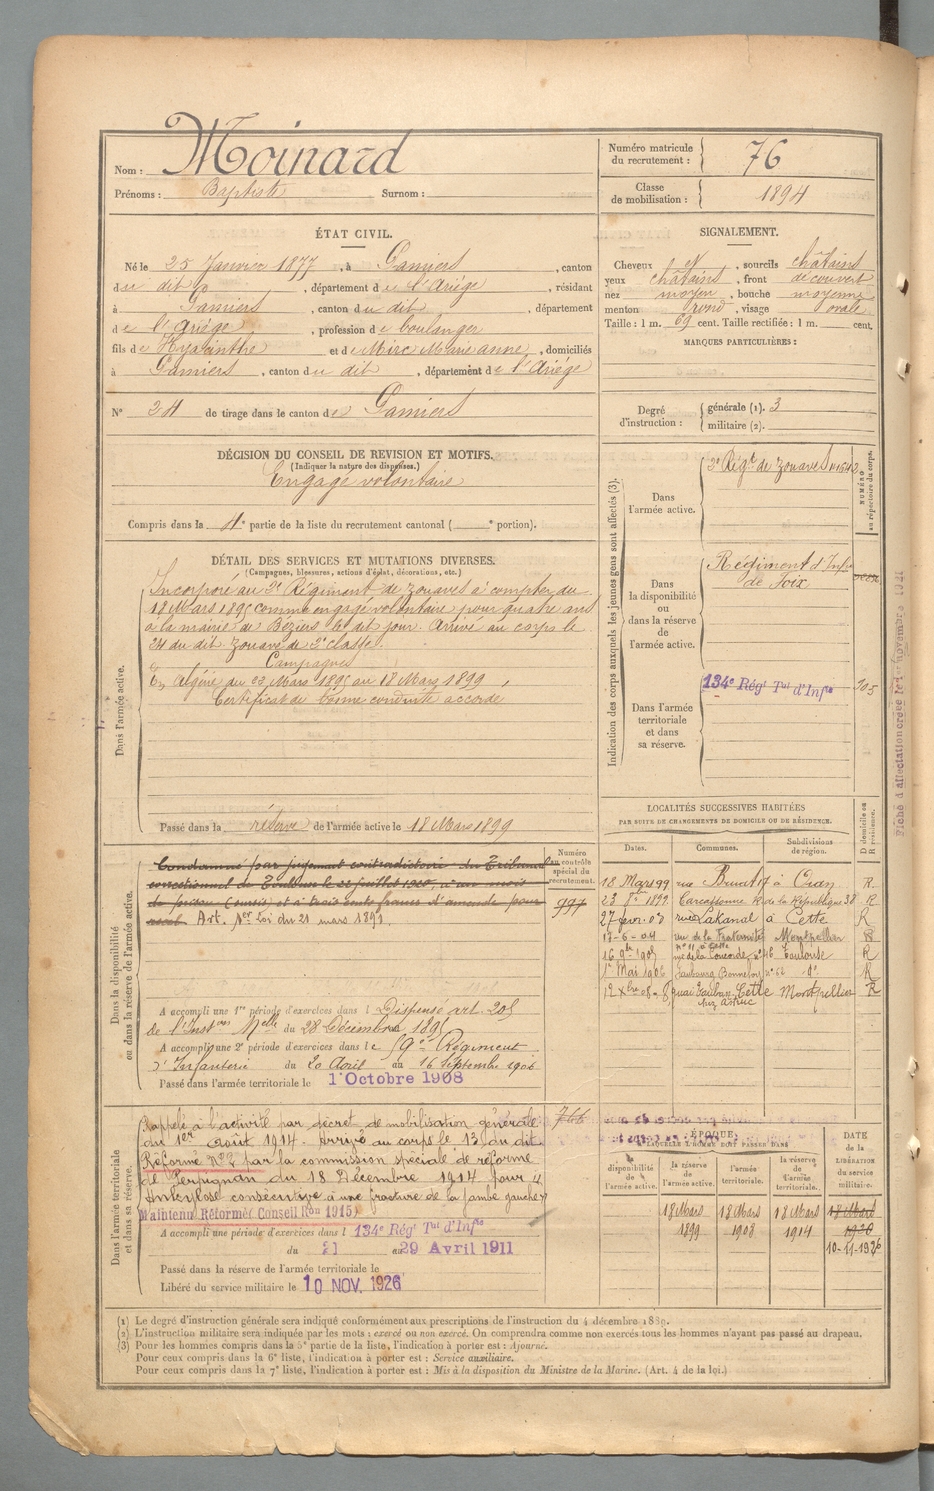 Nom : Moinard
Prénoms : Baptiste Surnom :
Numéro matricule du recrutement : 76
Classe de mobilisation : 1894
ÉTAT CIVIL.
Né le 25 Janvier 1877, à Pamiers, canton
du dit, département de l'Ariège, résidant
à Pamiers, canton du dit, département
de l'Ariège, profession de boulanger
fils de Hyacinthe et de Mirc Marie anne, domiciliés
à Pamiers, canton du dit, département de l'Ariège
N° 24 de tirage dans le canton de Pamiers
SIGNALEMENT.
Cheveux et, sourcils châtains
yeux châtains, front découvert
nez moyen, bouche moyenne
menton rond, visage ovale
Taille : 1 m. 69 cent. Taille rectifiée : 1 m. cent.
MARQUES PARTICULIÈRES :
Degré d'instruction : générale (1). 3
militaire (2).
DÉCISION DU CONSEIL DE REVISION ET MOTIFS.
(Indiquer la nature des dispenses.)
Engagé volontaire
Compris dans la 4e partie de la liste du recrutement cantonal ( e portion).
DÉTAIL DES SERVICES ET MUTATIONS DIVERSES.
(Campagnes, blessures, actions d'éclat, décorations, etc.)
Dans l'armée active.
Incorporé au 2e Régiment de Zouaves à compter du
18 Mars 1895 comme engagé volontaire pour quatre ans
à la mairie de Béziers le dit jour. Arrivé au corps le
24 du dit Zouave de 2e classe.
Campagnes
En Algérie du 23 Mars 1895 au 18 Mars 1899
Certificat de bonne conduite accordé
Passé dans la réserve de l'armée active le 18 Mars 1899
Indication des corps auxquels les jeunes gens sont affectés (3).
NUMÉRO au répertoire du corps.
Dans l'armée active.
2e Régt de Zouaves
Dans la disponibilité ou dans la réserve de l'armée active.
Régiment d'Infie
de Foix
134e Régt Tal d'Infie
Dans l'armée territoriale et dans sa réserve.
Fiche d'affectation créée le 1er novembre 1921
LOCALITÉS SUCCESSIVES HABITÉES
PAR SUITE DE CHANGEMENTS DE DOMICILE OU DE RÉSIDENCE.
Dates. Communes. Subdivisions de région. D domicile ou R résidence.
18 Mars 99 rue à Oran R
23 8bre 1899 Carcassonne R de la République 38 R
27 févr. 03 rue Lakanal à Cette R
17-6-04 rue de la Fraternité Montpellier R
n° 11 à Cette
16 9bre 1905 rue de la Concorde n° 46 Toulouse R
1er Mai 1906 faubourg Bonnefoy n° 62 do R
12 Xbre 08 quai Vauban Cette Montpellier R
Dans la disponibilité ou dans la réserve de l'armée active.
Numéro au contrôle spécial du recrutement.
997
Condamné par jugement contradictoire du Tribunal
correctionnel de Toulouse le 22 juillet 1905, à un mois
de prison (sursis) et à trois cents francs d'amende pour
Art. 1er loi du 21 mars 1898
A accompli une 1re période d'exercices dans l Dispensé art. 205
de l'Inston Melle du 28 Décembre 1895
A accompli une 2e période d'exercices dans le 59e Régiment
d'Infanterie du 20 Août au 16 Septembre 1906
Passé dans l'armée territoriale le 1er Octobre 1908
Dans l'armée territoriale et dans sa réserve.
766
Rappelé à l'activité par décret de mobilisation générale
du 1er août 1914. Arrivé au corps le 13 du dit.
Réformé N°2 par la commission spéciale de réforme
de Perpignan du 18 Décembre 1914 pour "
Ankylose consécutive à une fracture de la jambe gauche"
Maintenu Réformé (Conseil Ron 1915)
A accompli une période d'exercices dans l 134e Régt Tal d'Infie
du 21 au 29 Avril 1911
Passé dans la réserve de l'armée territoriale le
Libéré du service militaire le 10 NOV. 1926
ÉPOQUE
À LAQUELLE L'HOMME DOIT PASSER DANS
la disponibilité de l'armée active. la réserve de l'armée active. l'armée territoriale. la réserve de l'armée territoriale. DATE DE LA LIBÉRATION du service militaire.
18 Mars 1899 18 Mars 1908 18 Mars 1914 18 Mars 1920
10-11-1926
(1) Le degré d'instruction générale sera indiqué conformément aux prescriptions de l'instruction du 4 décembre 1889.
(2) L'instruction militaire sera indiquée par les mots : exercé ou non exercé. On comprendra comme non exercés tous les hommes n'ayant pas passé au drapeau.
(3) Pour les hommes compris dans la 5e partie de la liste, l'indication à porter est : Ajourné.
Pour ceux compris dans la 6e liste, l'indication à porter est : Service auxiliaire.
Pour ceux compris dans la 7e liste, l'indication à porter est : Mis à la disposition du Ministre de la Marine. (Art. 4 de la loi.)